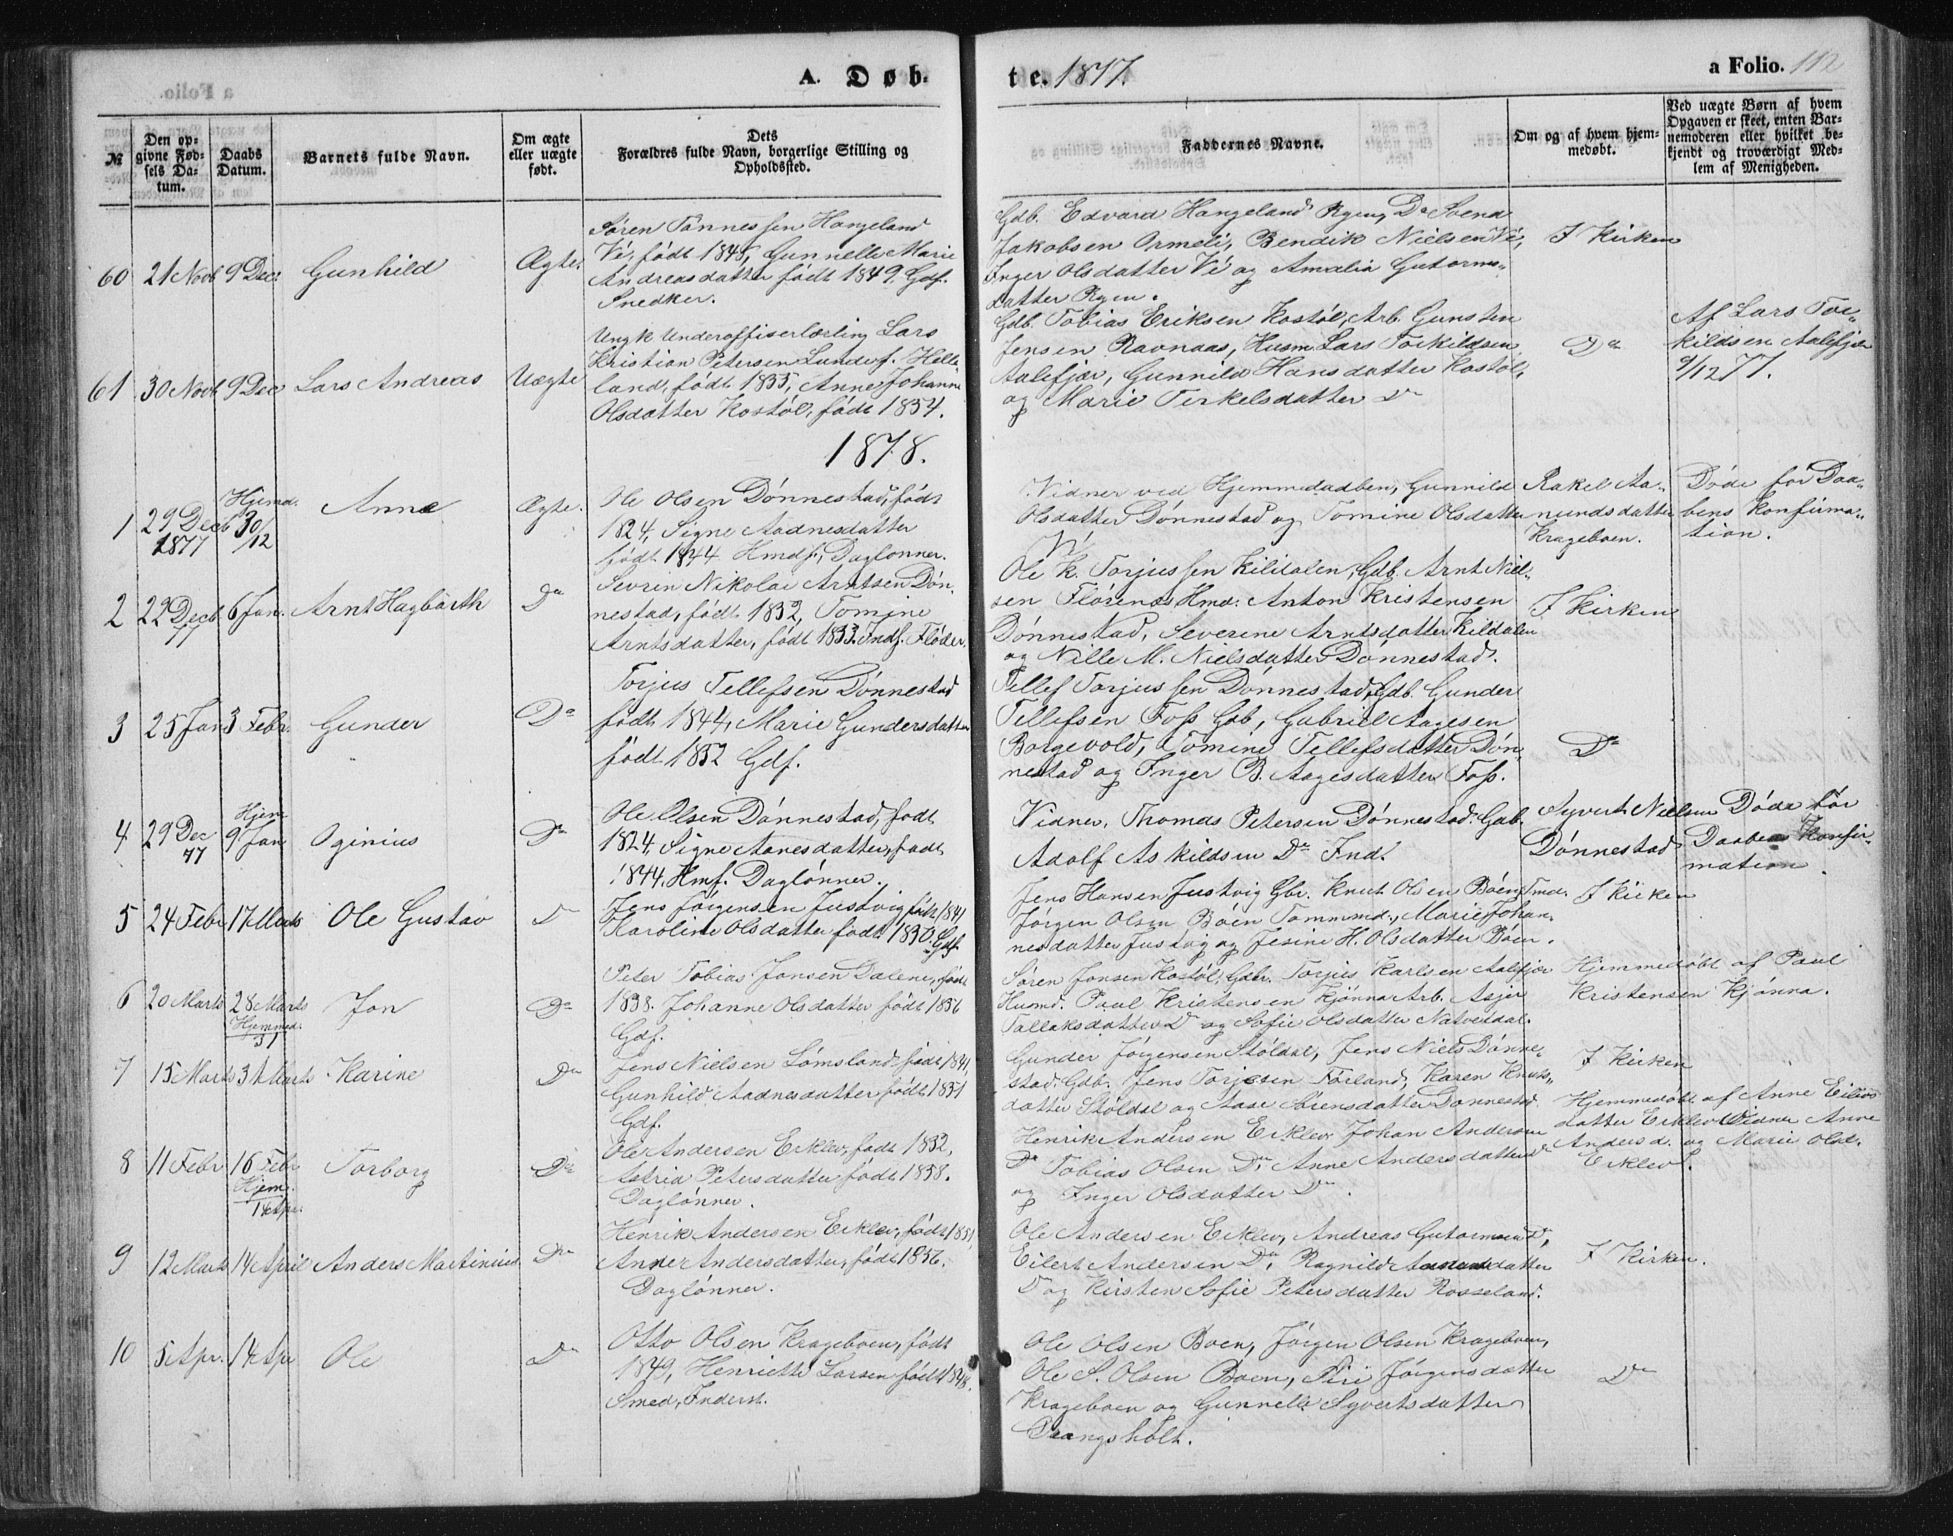 A. Døb-
te. 1877.
a Folio. 112
№
Den op-
givne Fød-
sels Da-
tum.
Daabs
Datum.
Barnets fulde Navn.
Om ægte
eller uægte
født.
Dets
Forældres fulde Navn, borgerlige Stilling og
Opholdssted.
Faddernes Navne.
Om og af hvem hjem-
medøbt.
Ved uægte Børn af hvem
Opgaven er skeet, enten Bar-
nemoderen eller hvilket be-
kjendt og troværdigt Med-
lem af Menigheden.
60 21 Novb 9 Dec. Gunhild Ægte.
Søren Tønnessen Hangeland
Vé, født 1848, Gunnelle Marie
Andreasdatter født 1849. Gdf.
Snedker.
Gdb. Edvard Hangeland Rgen, Do Svend
Jakobsen Ormeli, Bendik Nielsen Vé,
Inger Olsdatter Vé og Amalia Gutorms-
datter Rgen.
I Kirken
61 30 Novb 9 Dec Lars Andreas Uægte
Ungk Underoffiserlærling Lars
Kristian Petersen Lundevf. Helle-
land, født 1855, Anne Johanne
Olsdatter Kostøl, født 1854.
Gdb. Tobias Eriksen Kostøl, Arb. Gunsten
Jensen Ravnaas, Husm. Lars Torkildsen
Aalefjær, Gunnild Hansdatter Kostøl,
og Marie Terkelsdatter Do
Do
Af Lars Tor-
kildsen Aalefjær
9/12 77.
1878.
1 29 Decb
1877
Hjemd.
30/12
Anne Ægte.
Ole Olsen Dønnestad, født
1824, Signe Aadnesdatter
født 1844 Hmdf, Daglønner.
Vidner ved Hjemmedaaben, Gunnild
Olsdatter Dønnestad og Tomine Olsdatter
Rakel Aa-
nundsdatter
Krageboen.
Døde før Daa-
bens Konfirma-
tion.
2 22 Decb
77
6 Jan. Arnt Hagbarth Do
Severin Nikolai Arntsen Døn-
nestad, født 1832, Tomine
Arntsdatter, født 1833. Indf. Fløder.
Ole K. Torjussen Kilidalen, Gdb. Arnt Niel-
sen Florenæs Hmd. Anton Kristensen
Dønnestad, Severine Arntsdatter Kildalen
og Nille M. Nielsdatter Dønnestad.
I Kirken
3 25 Jan 3 Febr. Gunder Do
Torjus Tellefsen Dønnestad
født 1844, Marie Gundersdatter
født 1852 Gdf.
Tellef Torjussen Dønnestad, Gdb. Gunder
Tellefsen Foss Gdb, Gabriel Aagesen
Borgevold, Tomine Tellefsdatter Døn-
nestad og Inger B. Aagesdatter Foss.
Do
4 29 Dec
77
Hjem
9 Jan
Oginius Do
Ole Olsen Dønnestad, født
1824 Signe Aanesdatter, født
1844. Hmf. Daglønner.
Vidner. Thomas Petersen Dønnestad. Gdb.
Adolf Askildsen Do Ind.
Syvert Nielsen
Dønnestad
Døde før
Daabens Konfir-
mation.
5 24 Febr 17 Marts Ole Gustav Do
Jens Jørgensen Justvig født 1841
Karoline Olsdatter født 1850. Gdf.
Jens Hansen Justvig Gbr. Knut Olsen Boen Tmd.
Jørgen Olsen Boen Tommmd., Marie Johan-
nesdatter Justvig og Jesine H. Olsdatter Boen.
I Kirken
6 20 Marts 28 Marts
Hjemmed.
31
Jon Do
Peter Tobias Jonsen Dalene, født
1838. Johanne Olsdatter født 1836
Gdf.
Søren Jonsen Kostøl, Gdbr. Torjus Karlsen Aalefjær
Husmd. Paul Kristensen Kjønna Arb. Asjer
Tallaksdatter Do og Sofie Olsdatter Natvesdal.
Hjemmedøbt af Paul
Kristensen Kjønna.
7 15 Marts 31 Marts Karine Do
Jens Nielsen Lømsland født 1841,
Gunhild Aadnesdatter født 1851
Gdf.
Gunder Jørgensen Støldal, Jens Niels Dønne-
stad Gdb. Jens Torjesen Førland, Karen Knuts-
datter Støldal og Aase Sørensdatter Dønnestad.
I Kirken
8 11 Febr 16 Febr
Hjem.
14 Apr.
Torborg Do
Ole Andersen Erklev, født 1832,
Astrid Petersdatter født 1838.
Daglønner.
Henrik Andersen Erklev Johan Andersen
Do Tobias Olsen Do Anne Andersdatter Do
og Inger Olsdatter Do.
Hjemmedøbt af Anne Eilevs
datter Erklev Vidner Anne
Anders d. og Marie Olsd.
Erklev.
9 12 Marts 14 April Anders Martinius Do
Henrik Andersen Erklev, født 1851,
Anne Andersdatter, født 1856.
Daglønner.
Ole Andersen Erklev, Andreas Gutormsen Do,
Eilert Andersen Do, Ragnild Aanensdatter
Do og Kirsten Sofie Petersdatter Rosseland.
I Kirken.
10 5 Apr. 14 Apr Ole Do
Otto Olsen Krageboen, født
1849, Henriette Larsen født 1848.
Smed, Inderst.
Ole Olsen Boen, Jørgen Olsen Krageboen,
Ole S. Olsen Boen, Siri Jørgensdatter
Krageboen og Gunnelle Syvertsdatter
Strangsholt.
Do